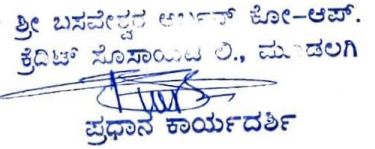 ಶ್ರೀ ಬಸವೇಶ್ವರ ಅರ್ಬನ್ ಕೋ-ಆಪ್.
ಕ್ರೆಡಿಟ್ ಸೊಸಾಯಿಟಿ ಲಿ., ಮೂಡಲಗಿ
ಪ್ರಧಾನ ಕಾರ್ಯದರ್ಶಿ